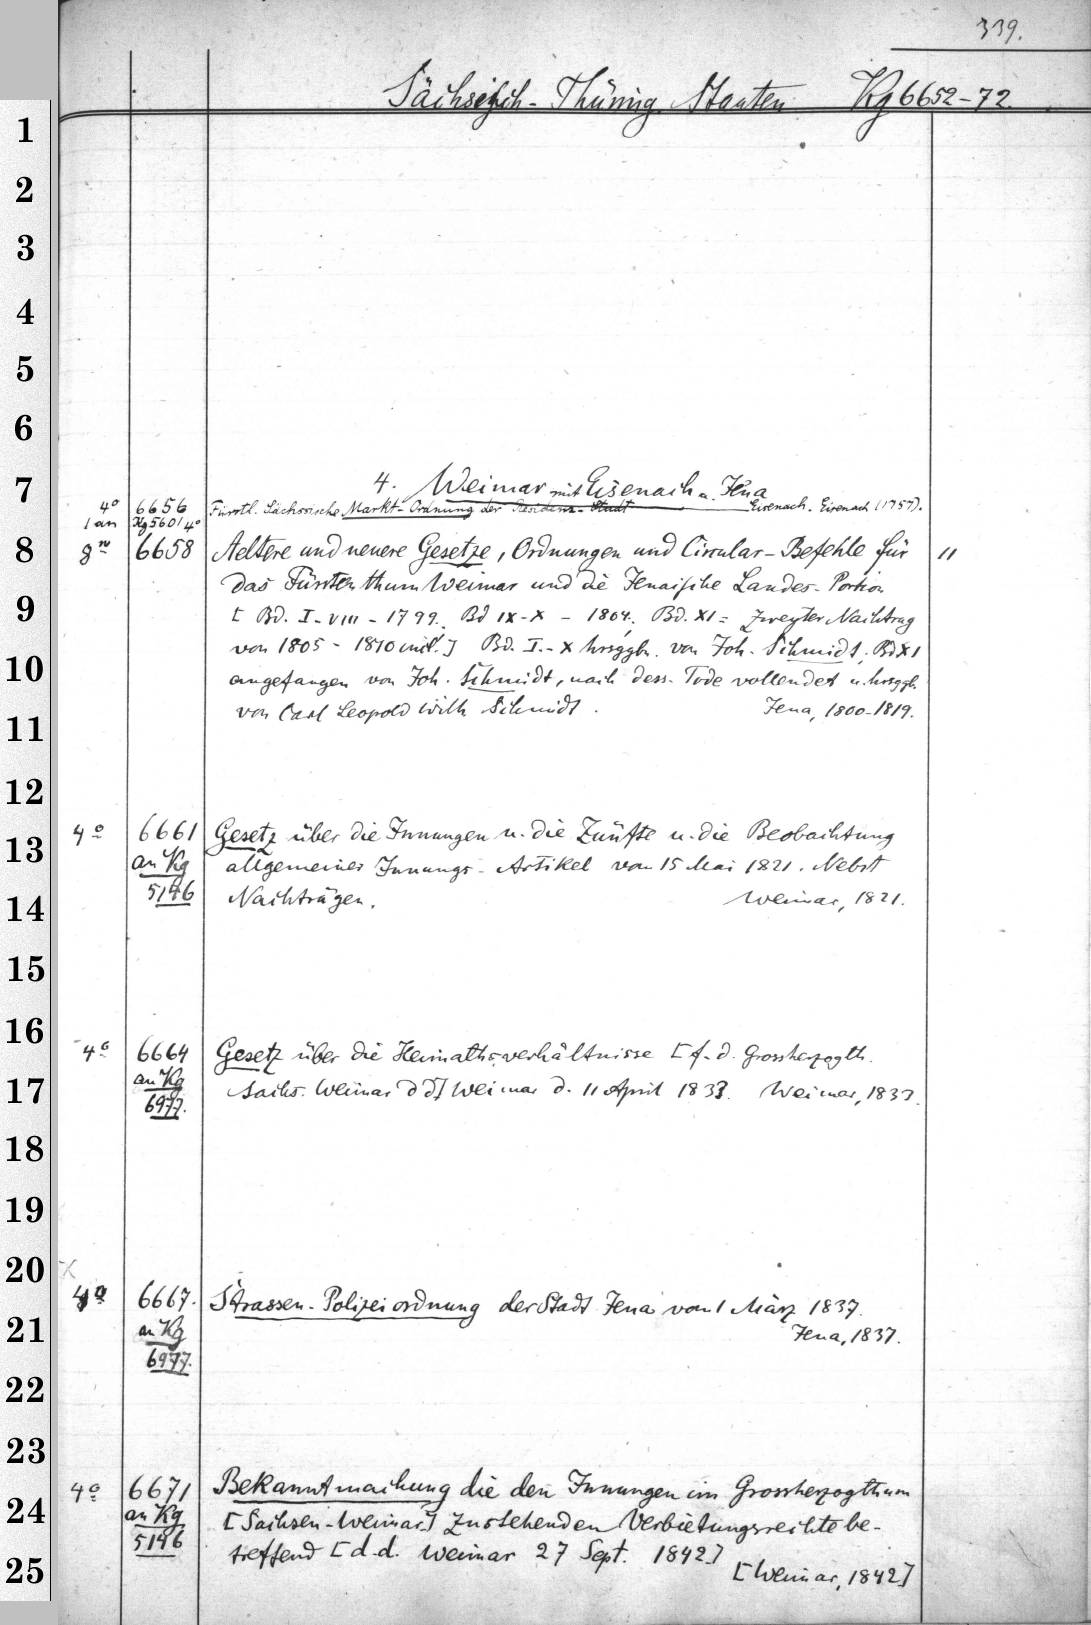 339.
Sächsisch-Thüring. Staaten Kg 6652-72.
1
2
3
4
5
6
7 4. Weimar mit Eisenach u. Jena
4o 6656 Fürstl. Sächsische Markt-Ordnung der Residenz-Stadt Eisenach. Eisenach (1757).
1 an Kg 5601 4o
8 8vo 6658 Aeltere und neuere Gesetze, Ordnungen und Circular-Befehle für 11
das Fürstenthum Weimar und die Jenaische Landes-Portion
9 [Bd. I-VIII - 1799. Bd IX-X - 1804. Bd. XI = Zweyter Nachtrag
von 1805 - 1810 incl.] Bd. I.-X hrsggbn. von Joh. Schmidt, Bd XI
10 angefangen von Joh. Schmidt, nach dess. Tode vollendet u. hrsggb.
11 von Carl Leopold Wilh Schmidt. Jena, 1800-1819.
12
4o 6661 Gesetz über die Innungen u. die Zünfte u. die Beobachtung
13 an Kg allgemeiner Innungs-Artikel vom 15 Mai 1821. Nebst
14 5146 Nachträgen. Weimar, 1821.
15
16 4o 6664 Gesetz über die Heimathsverhältnisse [f. d. Grossherzogth.
17 an Kg Sachs. Weimar d d] Weimar d. 11 April 1833. Weimar, 1833.
6977.
18
19
20
4o 6667. Strassen-Polizeiordnung der Stadt Jena vom 1 März 1837.
21 an Kg Jena, 1837.
6977.
22
23
4o 6671 Bekanntmachung die den Innungen im Grossherzogthum
24 an Kg [Sachsen-Weimar] zustehenden Verbietungsrechte be-
5146 treffend [d. d. Weimar 27 Sept. 1842]
25 [Weimar, 1842]